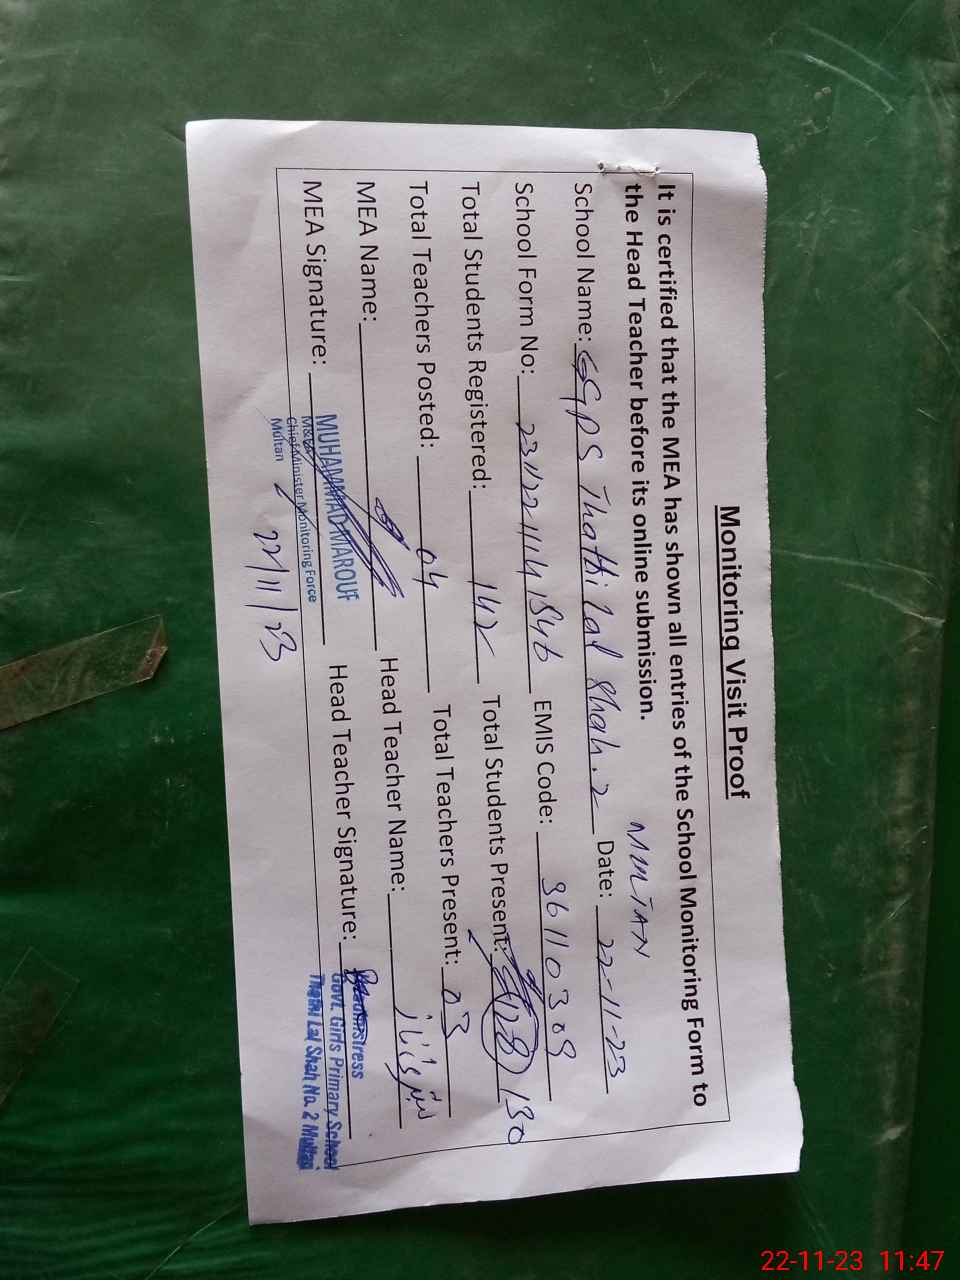 Monitoring Visit Proof
It is certified that the MEA has shown all entries of the School Monitoring Form to
the Head Teacher before its online submission.
MULTAN
School Name: GGPS Thatti Lal Shah.2 Date: 22-11-23
School Form No: EMIS Code: 36110309
Total Students Registered: 142 Total Students Present: 128 130
Total Teachers Posted: 04 Total Teachers Present: 03
MEA Name: Head Teacher Name:
MEA Signature: Head Teacher Signature:
MUHAMMAD MAROUF
Chief Minister Monitoring Force
Multan
22/11/23
Headmistress
Govt. Girls Primary School
Thatti Lal Shah No. 2 Multan
22-11-23 11:47